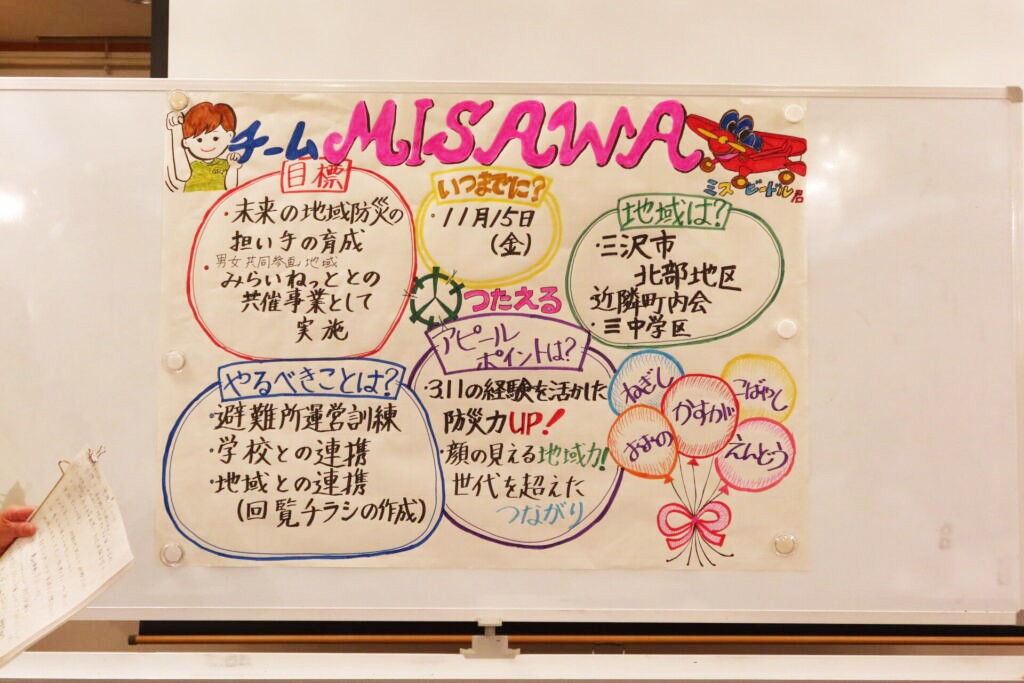 チーム MISAWA
ミス・ビードル君
目標
・未来の地域防災の
担い手の育成
男女共同参画地域
・みらいねっととの
共催事業として
実施
いつまでに?
・11月15日
(金)
地域は?
・三沢市
北部地区
近隣町内会
・三中学区
つたえる
やるべきことは?
・避難所運営訓練
・学校との連携
・地域との連携
(回覧チラシの作成)
アピール
ポイントは?
・3.11の経験を活かした
防災力UP!
・顔の見える地域力!
世代を超えた
つながり
ねぎし
かすが
こばやし
おおの
えんどう